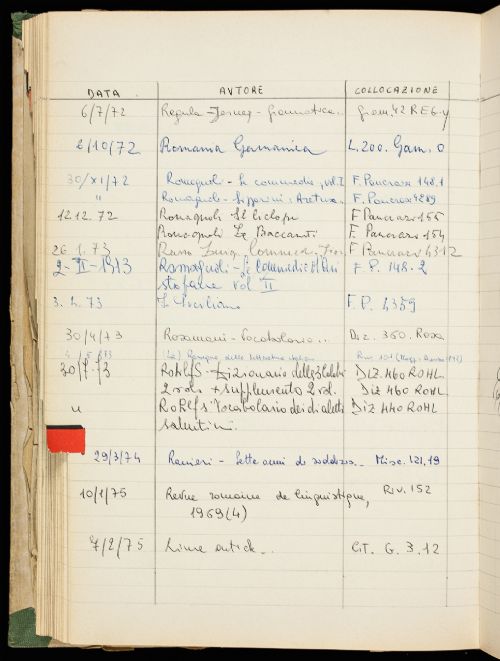 DATA AVTORE COLLOCAZIONE
6/7/72 Regula - Jerney - Grammatica.. Gram. 42 REG-y
2/10/72 Romania Germanica L.200. Gam. 0
30/XI/72 Romagnoli - Le commedie, vol. I F. Pancrazi 148.1
" Romagnoli - Lisippo F. Pancrazi 4289
12.12.72 Romagnoli Il Ciclope F Pancrazi 155
Romagnoli Le Baccanti F. Pancrazi 154
26.1.73 Russo Luigi Commed. F Pancrazi 4312
2-II-1973 Romagnoli - Le Commedie di Ari
stofane vol II F.P. 148.2
3.2.73 Le F.P. 4359
30/4/73 Rosamani - Vocabolario... Diz. 360. Rosa
della letteratura italiana Riv.
30/7-73 Rohlfs - Dizionario delle 3 Calabrie DIZ 460 ROHL
2 vol. + supplemento 2 vol. DIZ 460 ROHL
" Rohlfs Vocabolario dei dialetti DIZ 440 ROHL
salentini.
29/3/74 Ranieri - Sette anni di sodalizio.. Misc. 121,19
10/1/75 Revue romaine de linguistique, Riv. 152
1969(4)
7/2/75 Lirica antich... CIT. G. 3.12